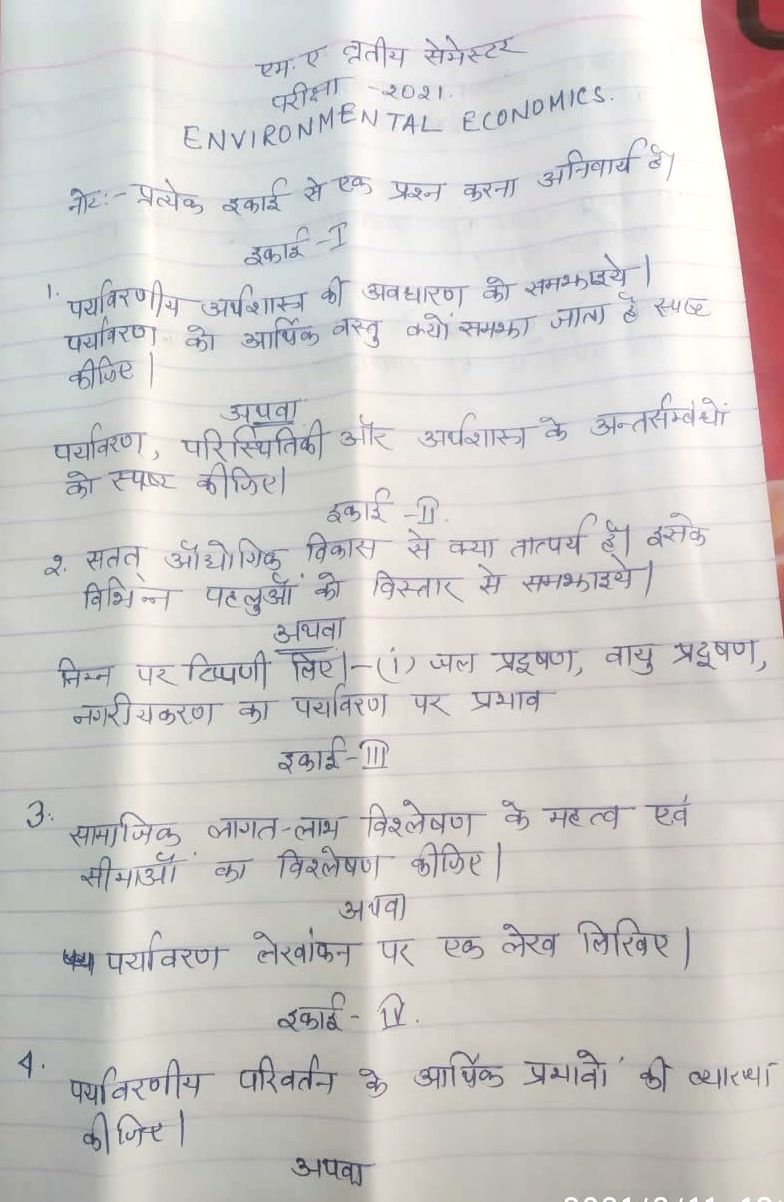 एम. ए. तृतीय सेमेस्टर
परीक्षा - 2021.
ENVIRONMENTAL ECONOMICS.
नोट:- प्रत्येक इकाई से एक प्रश्न करना अनिवार्य है।
इकाई - I
1. पर्यावरणीय अर्थशास्त्र की अवधारण को समझाइये।
पर्यावरण को आर्थिक वस्तु क्यों समझा जाता है स्पष्ट
कीजिए।
अथवा
पर्यावरण, परिस्थितिकी और अर्थशास्त्र के अन्तर्सम्बंधों
को स्पष्ट कीजिए।
इकाई - II.
2. सतत् औद्योगिक विकास से क्या तात्पर्य है। इसके
विभिन्न पहलुओं को विस्तार से समझाइये।
अथवा
निम्न पर टिप्पणी लिए।-(i) जल प्रदूषण, वायु प्रदूषण,
नगरीयकरण का पर्यावरण पर प्रभाव
इकाई - III
3. सामाजिक लागत-लाभ विश्लेषण के महत्व एवं
सीमाओं का विश्लेषण कीजिए।
अथवा
पर्यावरण लेखांकन पर एक लेख लिखिए।
इकाई - IV.
4. पर्यावरणीय परिवर्तन के आर्थिक प्रभावों की व्याख्या
कीजिए।
अथवा